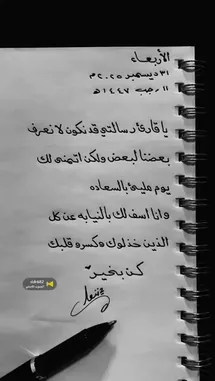 الأربعاء
٣١ ديسمبر ٢٠٢٥م
١١ رجب ١٤٤٧هـ
يا قارئ رسالتي قد نكون لا نعرف
بعضنا البعض ولكن اتمنى لك
يوم مليئ بالسعاده
وانا اسف لك بالنيابه عن كل
الذين خذلوك وكسرو قلبك
كن بخير